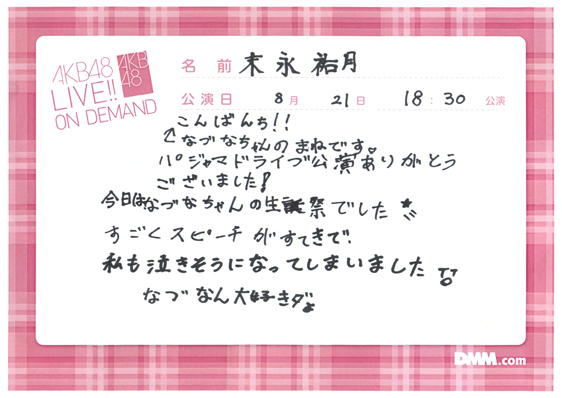 AKB48
LIVE!!
ON DEMAND
AKB
48
名前 末永祐月
公演日 8月 21日 18:30 公演
こんばんち!!
↑なづなちゃんのまねです。
パジャマドライブ公演ありがとう
ございました!
今日はなづなちゃんの生誕祭でした
すごくスピーチがすてきで、
私も泣きそうになってしまいました
なづなん大好きダよ
DMM.com